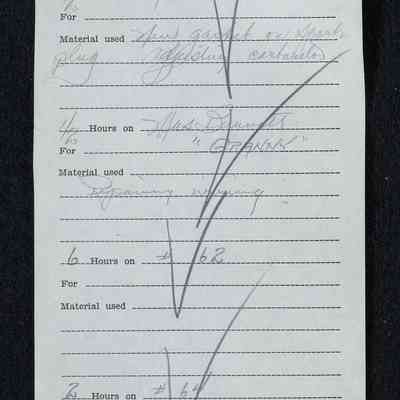 1/2
For
Material used new gasket on spark
plug adjusting carburetor
1/2 Hours on Mrs. Bennett
For "GRANNY"
Material used
Repairing wiring
6 Hours on # 62
For
Material used
2 Hours on # 64